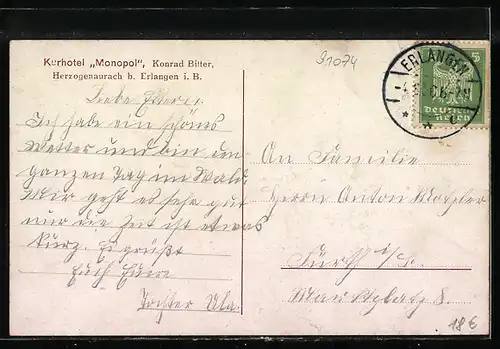 Kurhotel „Monopol“, Konrad Bitter,
Herzogenaurach b. Erlangen i. B.
91074
Liebe Eltern!
Ich habe ein schönes
Wetter und bin den
ganzen Tag im Wald.
Mir geht es sehr gut
nur die Zeit ist etwas
kurz. Es grüßt
Euch Euere
Tochter Ula.
ERLANGEN
5
Deutsches
Reich
An Familie
Herrn Anton
Fürth i/B.
8.
18 €